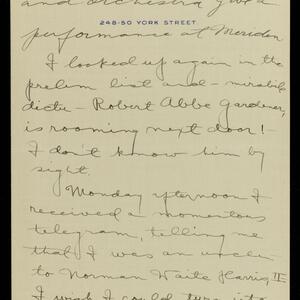 and orchestra give a
248-50 YORK STREET
performance at Meriden
I looked up again in the
prelim list and - mirabile
dictu - Robert Abbe Gardener,
is rooming next door! -
I don't know him by
sight.
Monday afternoon I
received a momentous
telegram, telling me
that I was an uncle
to Norman Waite Harris, II
I wish I could turn into